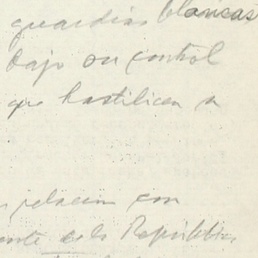 guardias blancas
bajo su control
que hostilicen a
relación con
de la República